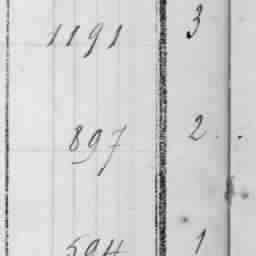 1191 3
897 2
594 1